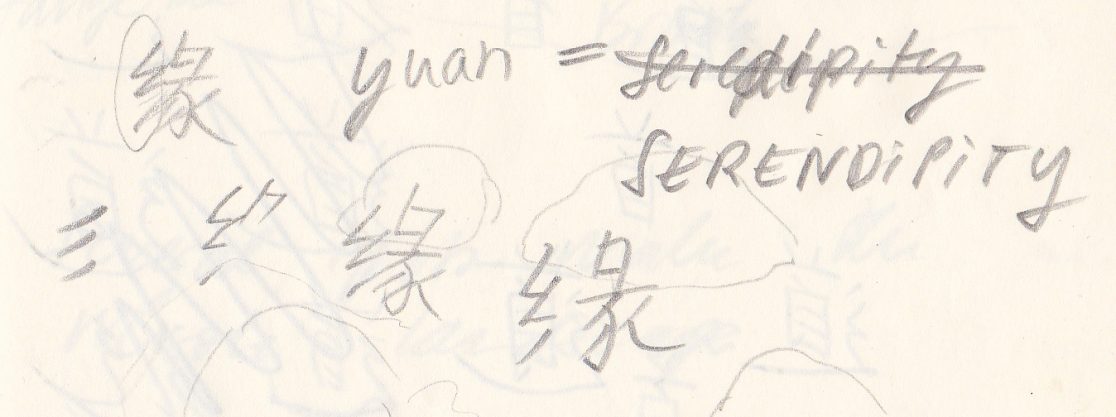 緣 yuan = seredipity
SERENDiPiTY
緣 緣